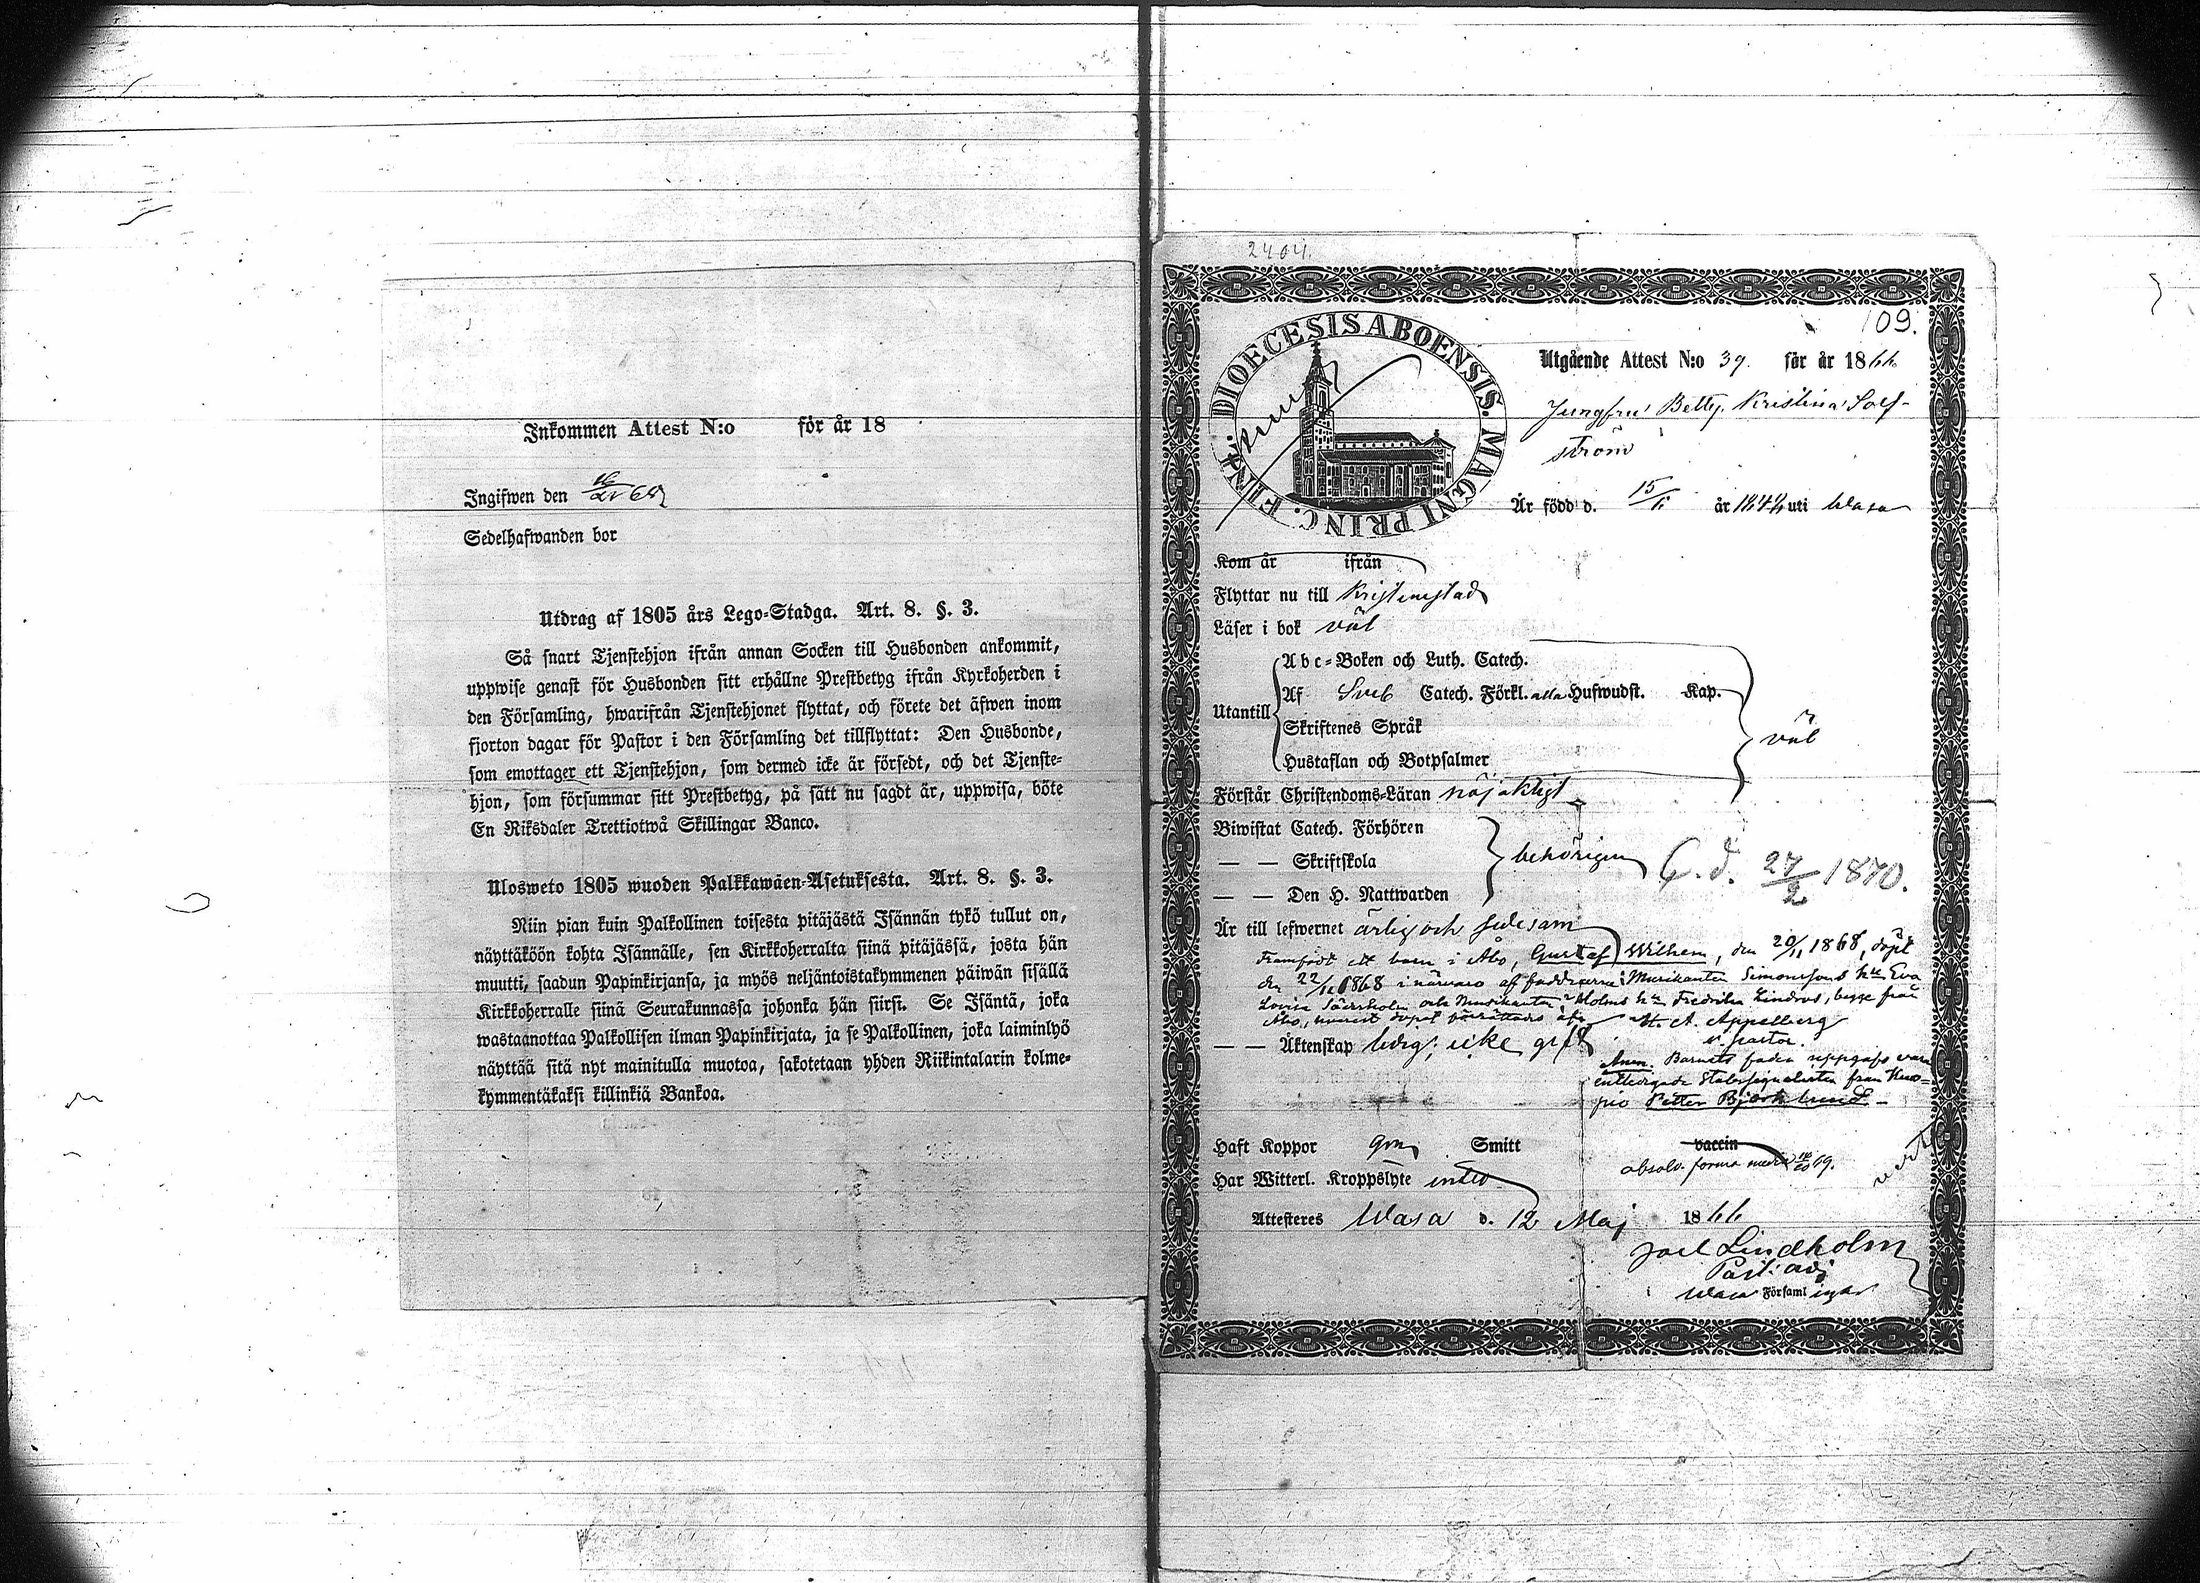 Inkommen Attest N:o för år 18
Ingifwen den
Sedelhafwanden bor
Utdrag af 1805 års Lego-Stadga. Art. 8. §. 3.
Så snart Tjenstehjon ifrån annan Socken till Husbonden ankommit,
uppwise genast för Husbonden sitt erhållne Prestbetyg ifrån Kyrkoherden i
den Församling, hwarifrån Tjenstehjonet flyttat, och förete det äfwen inom
fjorton dagar för Pastor i den Församling det tillflyttat: Den Husbonde,
som emottager ett Tjenstehjon, som dermed icke är försedt, och det Tjenste-
hjon, som försummar sitt Prestbetyg, på sätt nu sagdt är, uppwisa, böte
En Riksdaler Trettiotwå Skillingar Banco.
Ulosweto 1805 wuoden Palkkawäen-Asetuksesta. Art. 8. §. 3.
Niin pian kuin Palkollinen toisesta pitäjästä Isännän tykö tullut on,
näyttäköön kohta Isännälle, sen Kirkkoherralta siinä pitäjässä, josta hän
muutti, saadun Papinkirjansa, ja myös neljäntoistakymmenen päiwän sisällä
Kirkkoherralle siinä Seurakunnassa johonka hän siirsi. Se Isäntä, joka
wastaanottaa Palkollisen ilman Papinkirjata, ja se Palkollinen, joka laiminlyö
näyttää sitä nyt mainitulla muotoa, sakotetaan yhden Riikintalarin kolme-
kymmentäkaksi killinkiä Bankoa.
2404.
109.
DIOECESIS ABOENSIS. MAGNI PRINC. FINL.
Utgående Attest N:o 39. för år 1866
Jungfru Betty Kristina
ström
Är född d. 15/ år 1844 uti Wasa
Kom år ifrån
Flyttar nu till Kristinestad
Läser i bok väl
Abc-Boken och Luth. Catech.
Utantill
Af Sveb Catech. Förkl. alla Hufwudst. Kap.
Skriftenes Språk
Hustaflan och Botpsalmer
väl
Förstår Christendoms-Läran nöjaktigt
Biwistat Catech. Förhören
— — Skriftskola
— — Den H. Nattwarden
behörigen
C. d. 27/2 1870.
Är till lefwernet ärlig och
Framfödt ett barn i Åbo, Gustaf Wilhem, den 20/11 1868, döpt
den 22/11 1868 i närvaro af faddrarne: Musikanten Simonssons hu Eva
Lovisa och Musikanten Holms hu Fredrika Lindros, begge från
Åbo, hvarest dopet förrättades af
A. Appelberg
v. pastor.
— — Äktenskap ledig; icke gift
Anm. Barnets fader uppgafs vara
entledigade Stabssignalisten från Kuo-
pio Petter Björklund. —
Haft Koppor Smitt vaccin
absolv. forma media 69.
Har Witterl. Kroppslyte
Attesteres Wasa d. 12 Maj 1866
Joel Lindholm
Past: adj
Wasa Församlingar